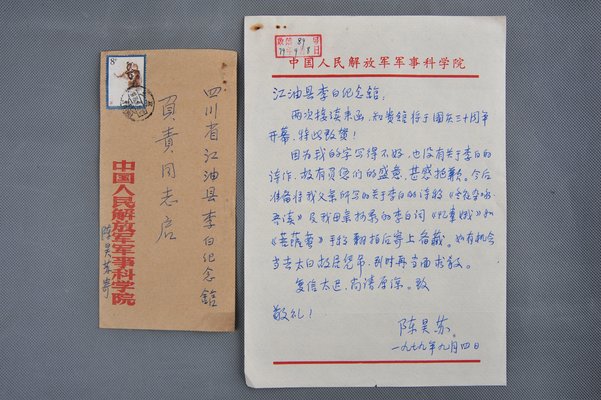 8分
四川省江油县李白纪念馆
负责同志启
中国人民解放军军事科学院
陈昊苏寄
收信 89 号
79年9月8日
中国人民解放军军事科学院
江油县李白纪念馆:
两次接读来函,知贵馆将于国庆三十周年
开幕,特此致贺!
因为我的字写得不好,也没有关于李白的
诗作,故有负您们的盛意,甚感抱歉。今后
准备将我父亲所写的关于李白的诗的《冬夜杂咏·
吾读》及我母亲抄录的李白词《忆秦娥》和
《菩萨蛮》手稿翻拍后寄上备藏。如有机会
当去太白故居凭吊,到时再当面求教。
复信太迟,尚请原谅。致
敬礼!
陈昊苏.
一九七九年九月四日